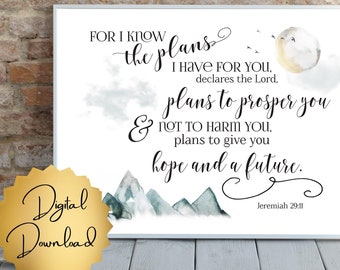 FOR I KNOW
the plans
I HAVE FOR YOU,
declares the Lord,
plans to prosper you
& NOT TO HARM YOU,
plans to give you
hope and a future.
Jeremiah 29:11
Digital
Download